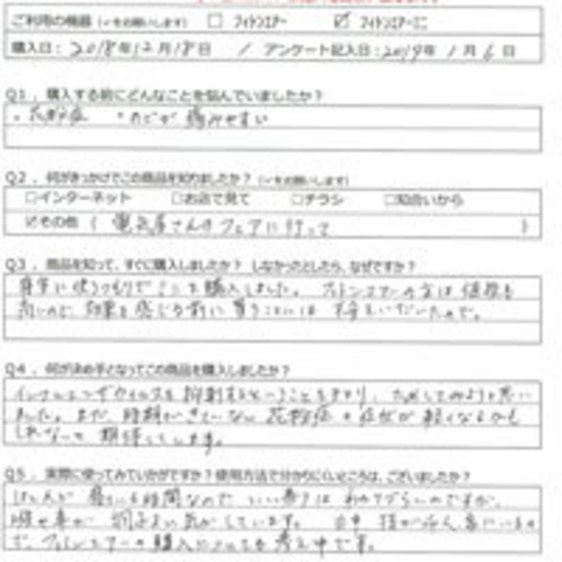 ご利用の機器（✓をお願いします） □ フィトンエアー ☑ フィトンエアーミニ
購入日：2018年12月18日 / アンケート記入日：2019年1月6日
Q1．購入する前にどんなことを悩んでいましたか？
・花粉症 ・のどが痛みやすい
Q2．何がきっかけでこの商品を知りましたか？（✓をお願いします）
□インターネット □お店で見て □チラシ □知合いから
☑その他（電気屋さんのフェアに行って）
Q3．商品を知って、すぐに購入しましたか？ しなかったとしたら、なぜですか？
購入しました。フィトンエアーの方は値段も
高いので、効果を感じる前に買うことには不安をいだいたので。
Q4．何が決め手となってこの商品を購入しましたか？
インフルエンザウイルスを抑制するということを ためしてみようと思い
ました。まだ時期がきていない花粉症の症状が軽くなるかも
しれないと期待しています。
Q5．実際に使ってみていかがですか？使用方法で分かりにくいところは、ございましたか？
ほとんど 時間なので わかりづらいのですが、
調子よい気がしています。
で、フィトンエアーの購入についても考え中です。